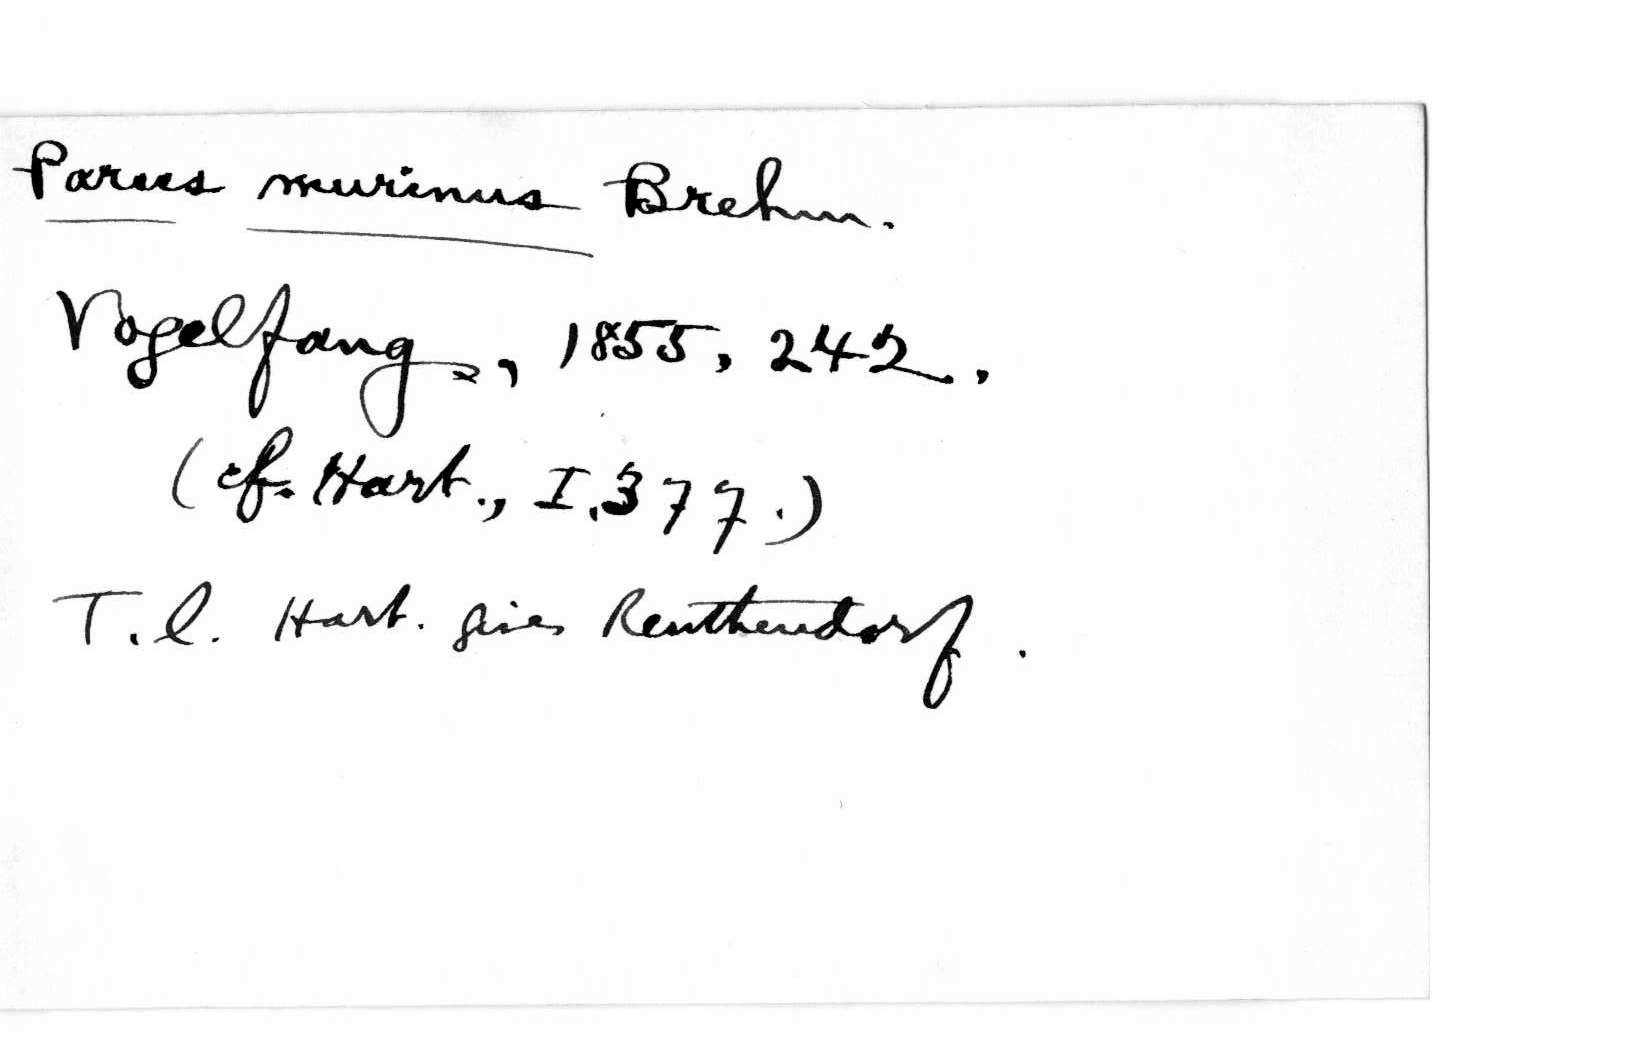 Parus murinus Brehm.
Vogelfang, 1855, 242.
(cf. Hart., I.377.)
T.l. Hart. gives Renthendorf.